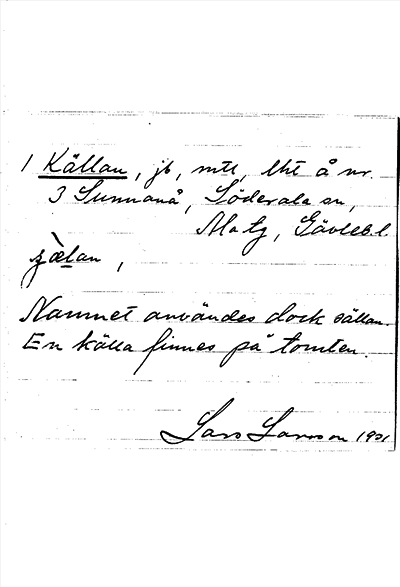 1 Källan, jb, mtl, lht å nr.
3 Sunnanå, Söderala sn,
Ala tg, Gävlebl.
Namnet användes dock sällan.
En källa finnes på tomten.
Lars Larsson 1931